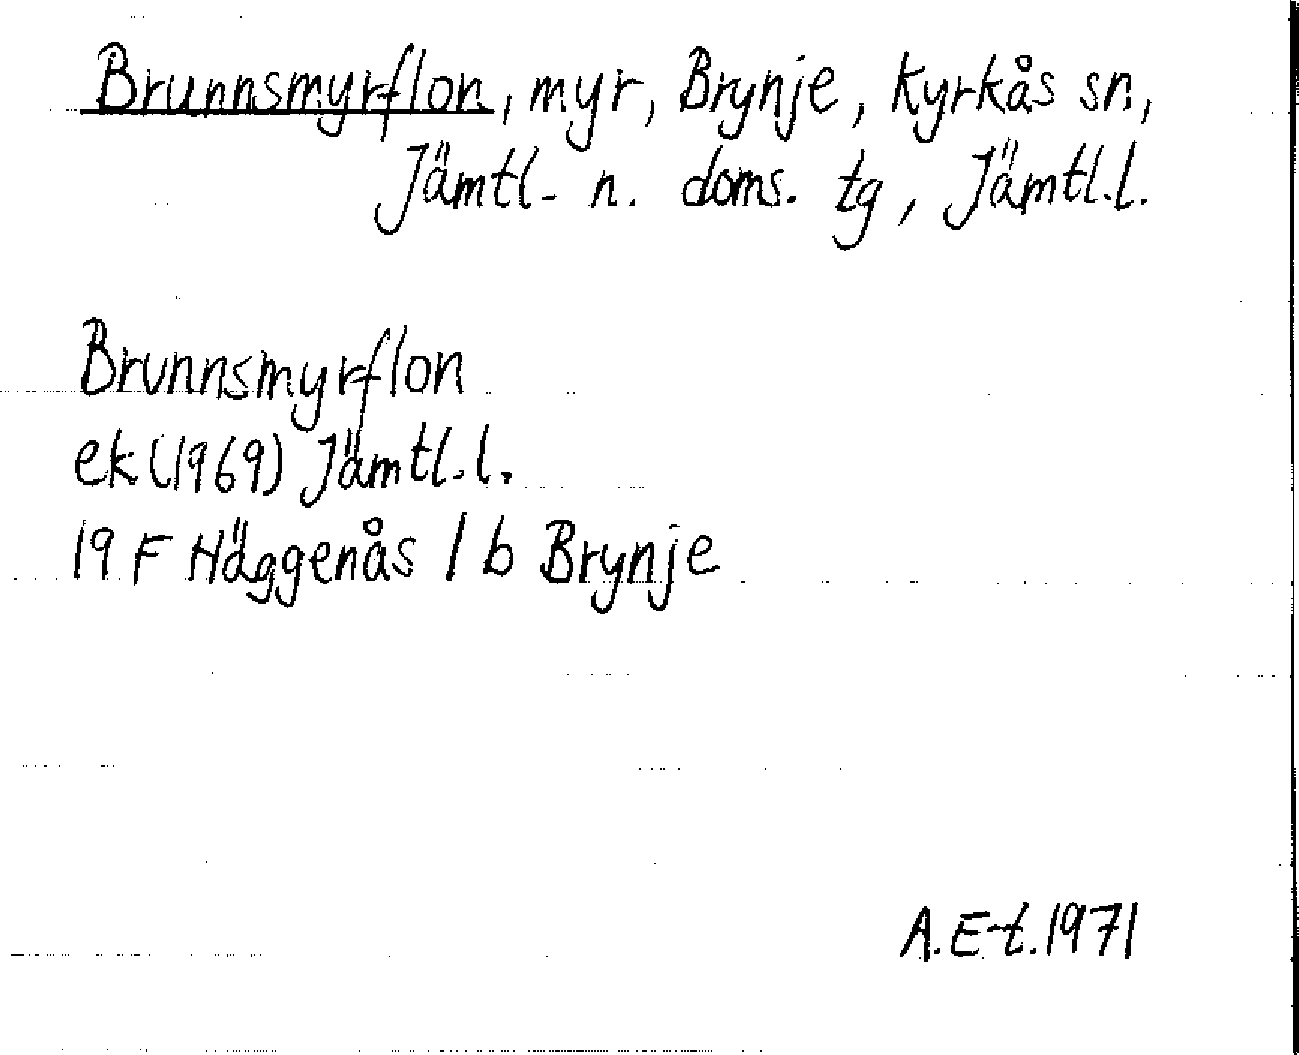 Brunnsmyrflon, myr, Brynje, Kyrkås sn,
Jämtl. n. doms. tg, Jämtl.l.
Brunnsmyrflon
ek (1969) Jämtl.l.
19 F Häggenås 1 b Brynje
A. E-t. 1971